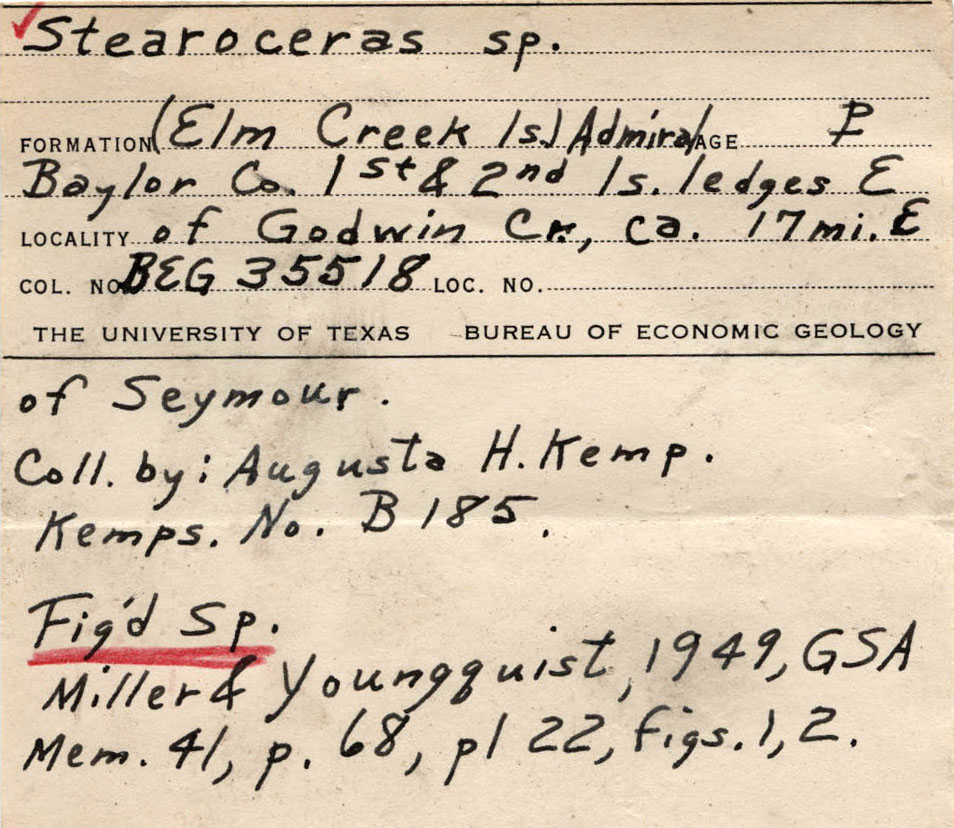 ✓Stearoceras sp.
FORMATION (Elm Creek ls.) Admiral AGE P
Baylor Co. 1st & 2nd ls. ledges E
LOCALITY of Godwin Cr., ca. 17mi. E
COL. NO. BEG 35518 LOC. NO.
THE UNIVERSITY OF TEXAS BUREAU OF ECONOMIC GEOLOGY
of Seymour.
Coll. by: Augusta H. Kemp.
Kemps. No. B 185.
Fig'd Sp.
Miller & Youngquist, 1949, GSA
Mem. 41, p. 68, pl 22, figs. 1, 2.